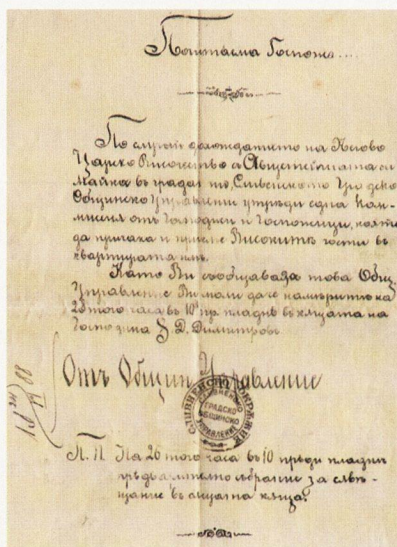 Почитаема Госпожо....
По случай дохожданието на Негово
Царско Височество и Августейшата си
Майка въ градът ни, Сливенското Градско
Общинско Управление учреди една Ком-
мисия отъ Господжи и Госпожици, която
да причака и приеме Високитѣ гости въ
квартирата имъ.
Като Ви съобщавада това Общ.
Управление Ви моли да се намерите на
часа въ 10 пр. пладнѣ въ къщата на
Господина Д. Димитровъ
Отъ Общин. Управление
88
СЛИВЕНСКО ОКРѪЖИЕ
СЛИВЕНСКО ГРАДСКО ОБЩИНСКО УПРАВЛЕНИЕ
П. П. На 26 того часа въ 10 прѣди пладнѣ
прѣдварително събрание за съвѣ-
щание въ същата къща.